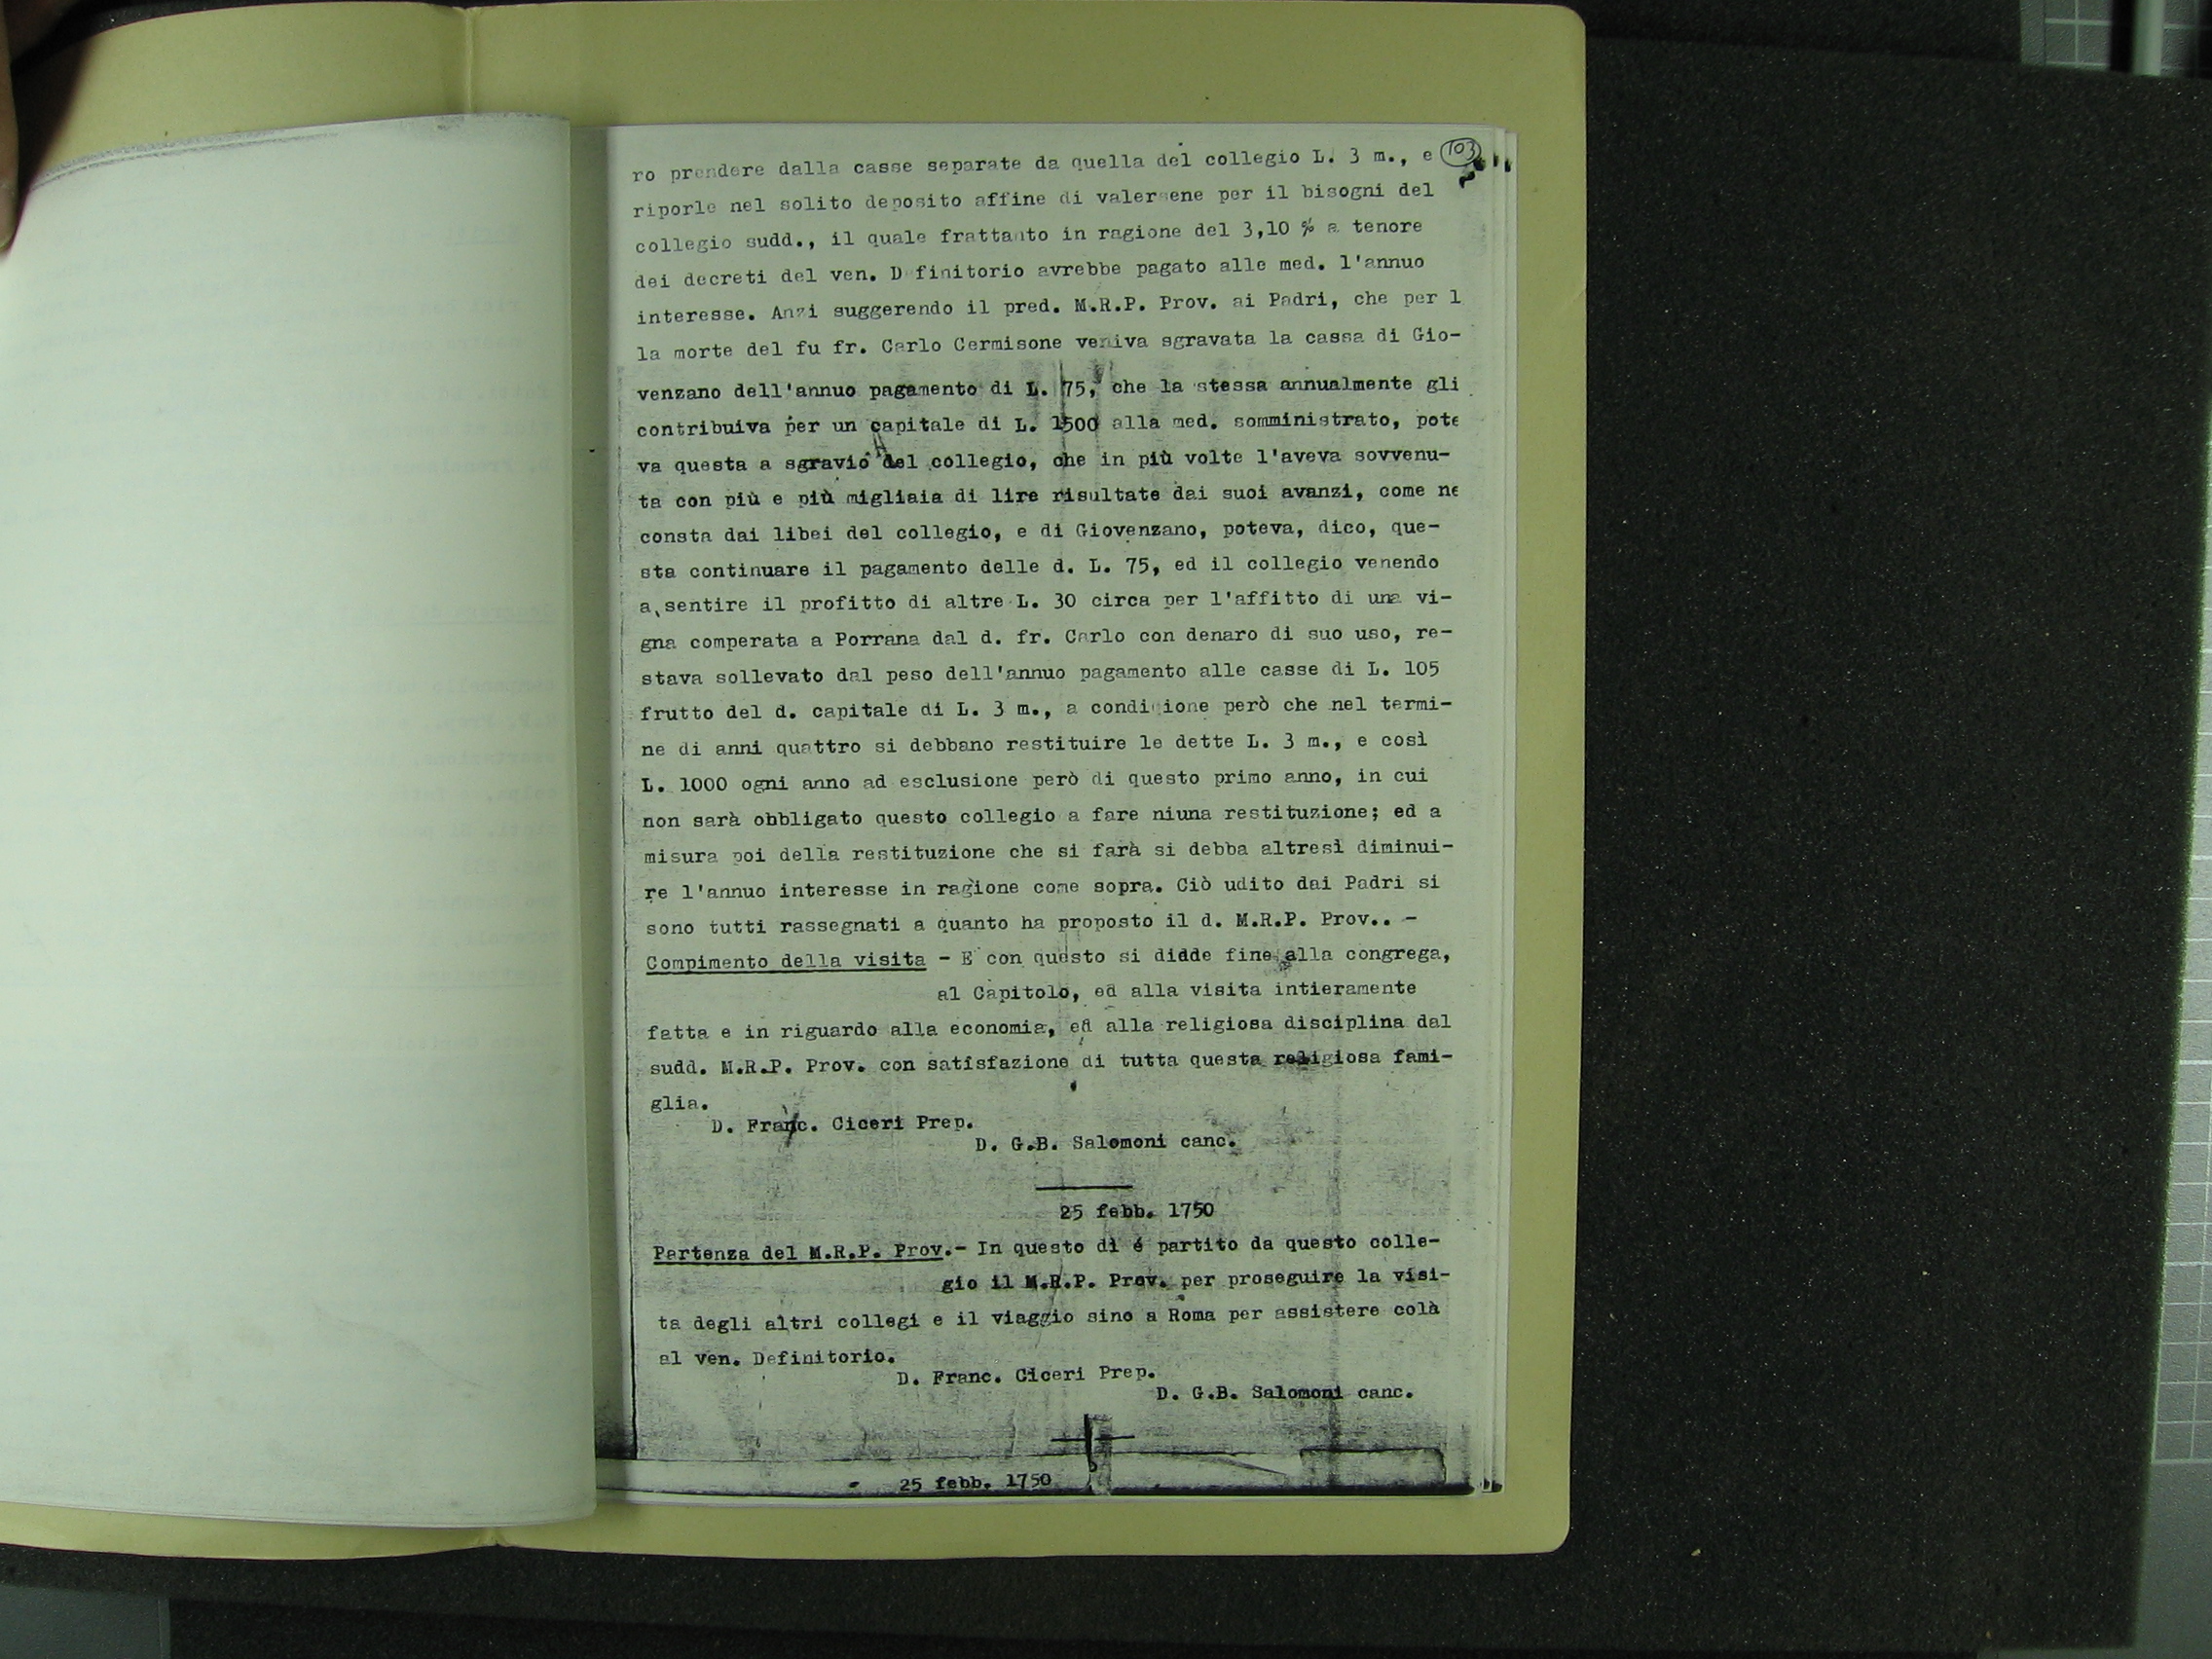 103
ro prendere dalla casse separate da quella del collegio L. 3 m., e
riporle nel solito deposito affine di valersene per il bisogni del
collegio sudd., il quale frattanto in ragione del 3,10 % a tenore
dei decreti del ven. Definitorio avrebbe pagato alle med. l'annuo
interesse. Anzi suggerendo il pred. M.R.P. Prov. ai Padri, che per l
la morte del fu fr. Carlo Cermisone veniva sgravata la cassa di Gio-
venzano dell'annuo pagamento di L. 75, che la stessa annualmente gli
contribuiva per un capitale di L. 1500 alla med. somministrato, pote
va questa a sgravio del collegio, che in più volte l'aveva sovvenu-
ta con più e più migliaia di lire risultate dai suoi avanzi, come ne
consta dai libei del collegio, e di Giovenzano, poteva, dico, que-
sta continuare il pagamento delle d. L. 75, ed il collegio venendo
a sentire il profitto di altre L. 30 circa per l'affitto di una vi-
gna comperata a Porrana dal d. fr. Carlo con denaro di suo uso, re-
stava sollevato dal peso dell'annuo pagamento alle casse di L. 105
frutto del d. capitale di L. 3 m., a condizione però che nel termi-
ne di anni quattro si debbano restituire le dette L. 3 m., e così
L. 1000 ogni anno ad esclusione però di questo primo anno, in cui
non sarà obbligato questo collegio a fare niuna restituzione; ed a
misura poi della restituzione che si farà si debba altresì diminui-
re l'annuo interesse in ragione come sopra. Ciò udito dai Padri si
sono tutti rassegnati a quanto ha proposto il d. M.R.P. Prov.. -
Compimento della visita - E con questo si didde fine alla congrega,
al Capitolo, ed alla visita intieramente
fatta e in riguardo alla economia, ed alla religiosa disciplina dal
sudd. M.R.P. Prov. con satisfazione di tutta questa religiosa fami-
glia.
D. Franc. Ciceri Prep.
D. G.B. Salomoni canc.
25 febb. 1750
Partenza del M.R.P. Prov.- In questo dì è partito da questo colle-
gio il M.R.P. Prov. per proseguire la visi-
ta degli altri collegi e il viaggio sino a Roma per assistere colà
al ven. Definitorio.
D. Franc. Ciceri Prep.
D. G.B. Salomoni canc.
25 febb. 1750